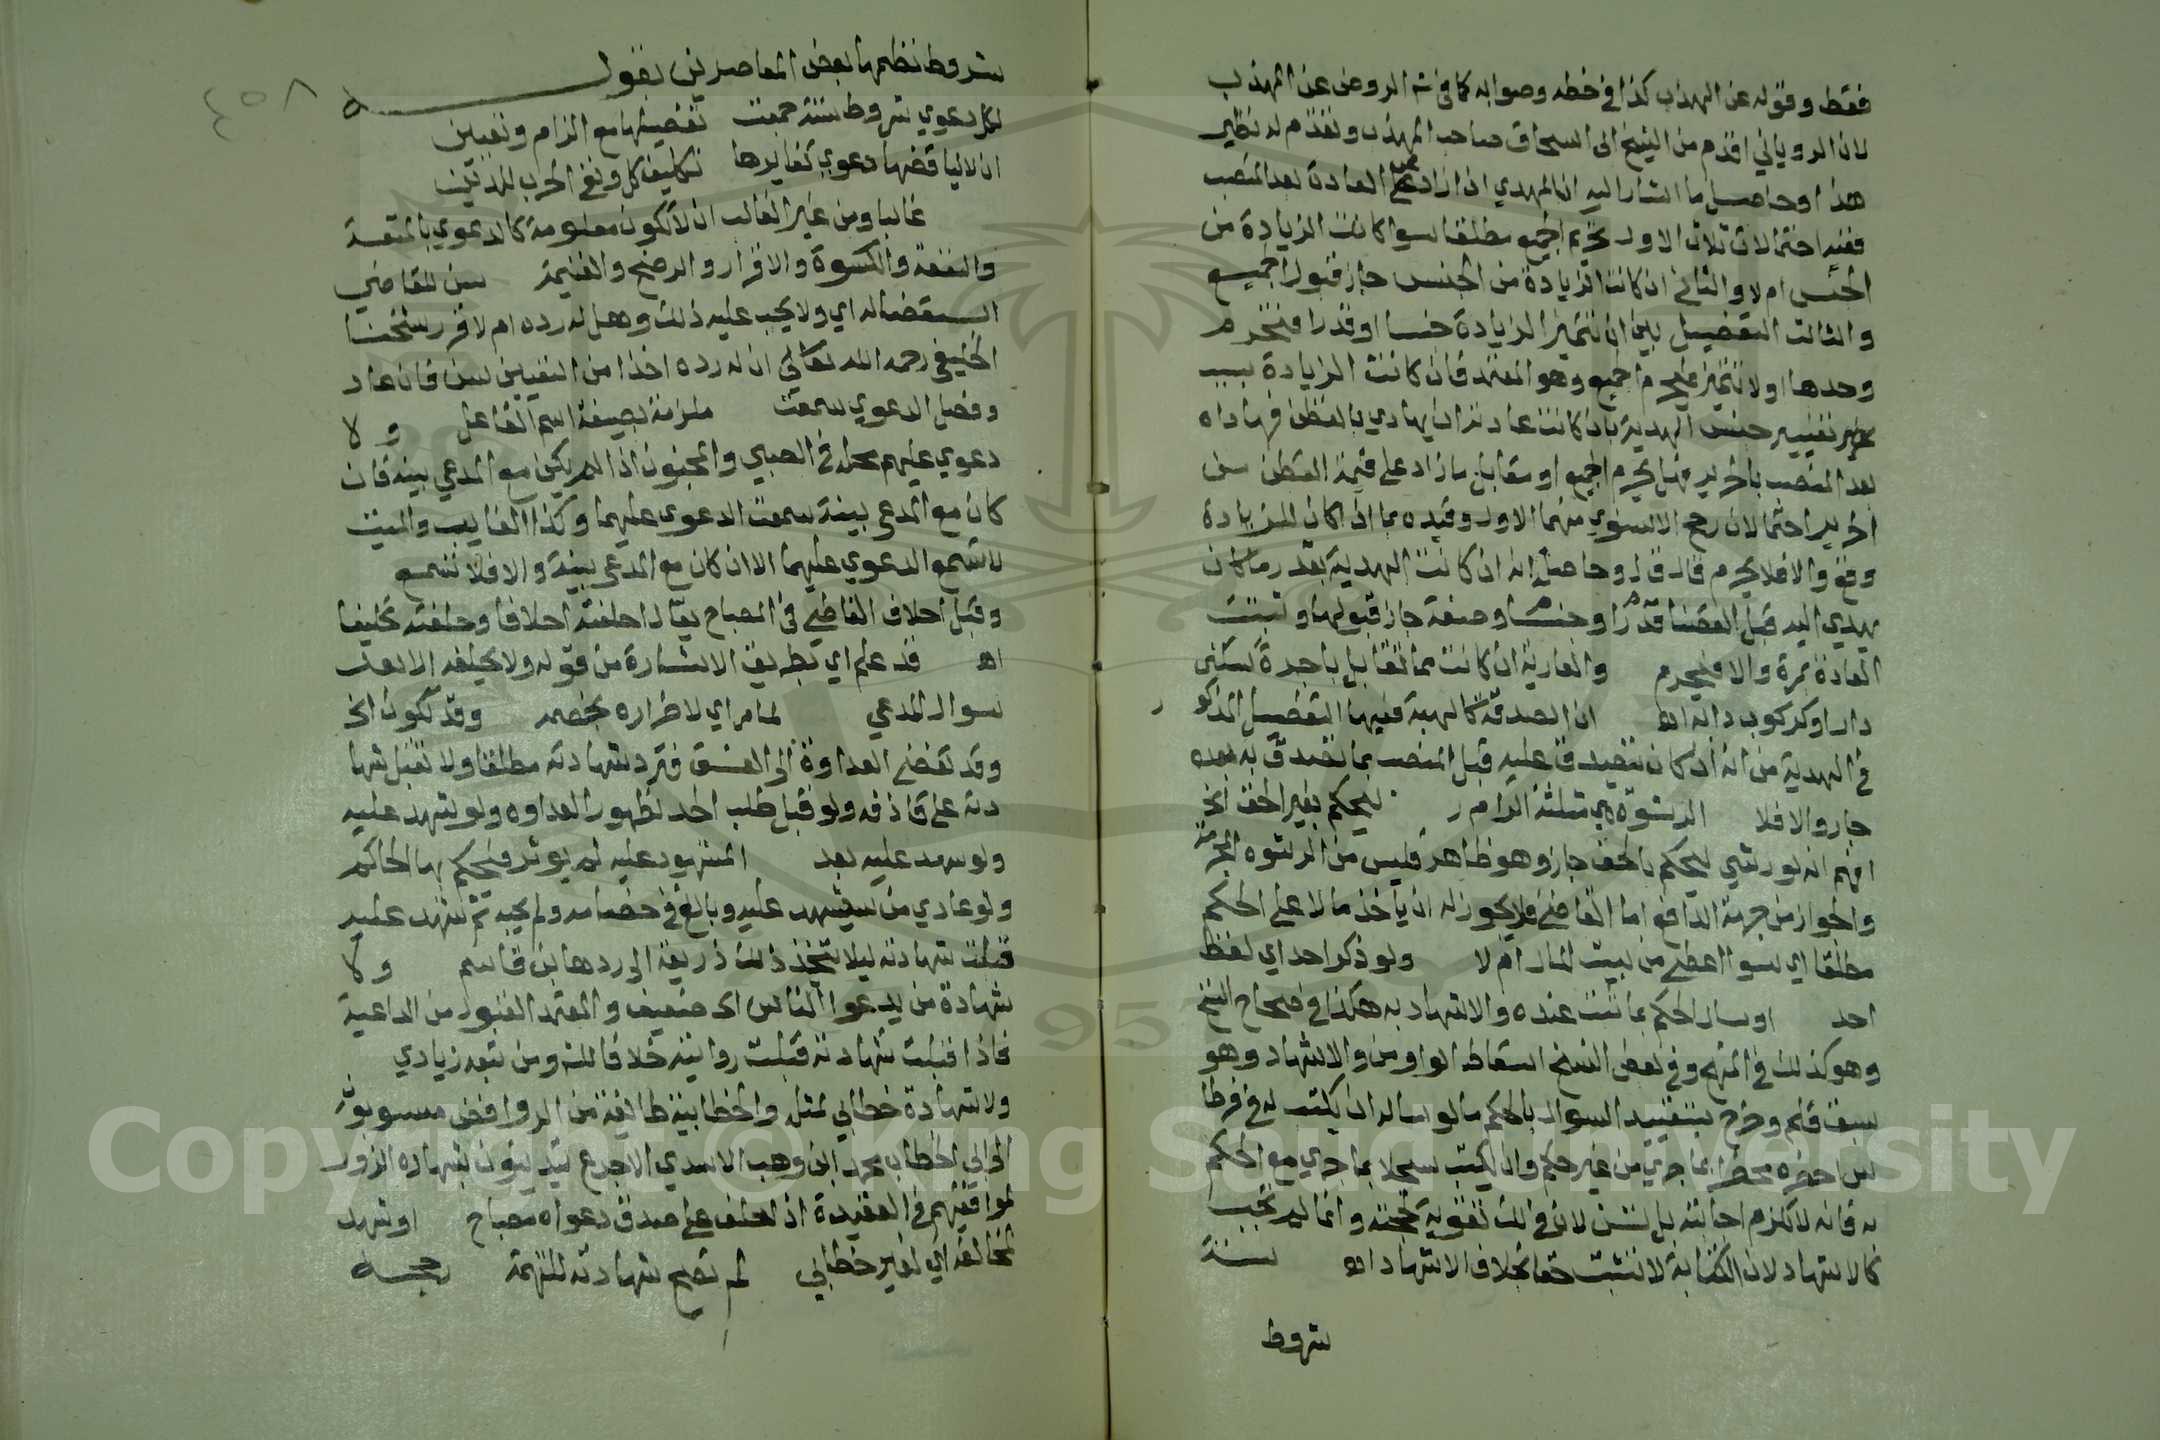 فقط وقوله عن المهذب كذا في خطه وصوابه كما في شرح الروض عن المهذب
لان الروياني اقدم من الشيخ ابي اسحاق صاحب المهذب وتقدم له نظير
هذا وحاصل ما اشار اليه ان المهدي ان زاد على العادة بعد المنصب
ففيه احتمالات ثلاث الاول تحريم الجميع مطلقا سوا كانت الزيادة من
الجنس ام لا والثاني ان كانت الزيادة من الجنس جاز قبول الجميع
والثالث التفصيل بين ان تتميز الزيادة جنسا او قدرا فتحرم
وحدها او لا تتميز فيحرم الجميع وهو المعتمد فان كانت الزيادة بسبب
تغيير جنس الهدية بان كانت عادته ان يهادي بالقطن فهاداه
بعد المنصب بالحرير فهل يحرم الجميع او مقابل ما زاد على قيمة القطن من
الحرير احتمالان رجح الاسنوي منهما الاول وقيده بما اذا كان للزيادة
وقع والا فلا يحرم قال ق ل وحاصله انه ان كانت الهدية بقدر ما كان
يهدي اليه قبل القضا قدرا وجنسا وصفة جاز قبولها وتثبت
العادة بمرة والا فيحرم والعارية ان كانت مما تقابل باجرة كسكنى
دار او كركوب دابة اهـ ان الصدقة كالهبة فيها التفصيل المذكور
في الهدية من انه ان كان يتصدق عليه قبل المنصب بما تصدق به بعده
جاز والا فلا الرشوة هي مثلثة الرا م ر ليحكم بغير الحق الخ
افهم انه لو رشي ليحكم بالحق جاز وهو ظاهر فليس من الرشوه المحرمة
والجواز من جهة الدافع اما القاضي فلا يجوز له ان ياخذ مالا على الحكم
مطلقا اي سوا اعطي من بيت المال ام لا ولو ذكر احد اي لفظ
احد او سال الحكم بما ثبت عنده والاشهاد به هكذا في صحاح النسخ
وهو كذلك في المنهج وفي بعض النسخ اسقاط الواو من والاشهاد وهو
سبق قلم وخرج بتقييد السوال بالحكم ما لو ساله ان يكتب له في قرطاس
احضره محضرا بما جرى من غير حكم وان يكتب سجلا بما جرى مع الحكم
به فانه لا تلزم اجابته بل تسن لان في ذلك تقوية لحجته وانما لم تجب
كالاشهاد لان الكتابة لا تثبت حقا بخلاف الاشهاد اهـ ستة
شروط
٤٥٨
شروط نظمها بعض المعاصرين بقوله
لكل دعوي شروط ستة جمعت تفصيلها مع الزام وتعيين
ان لا يناقضها دعوي تغايرها تكليف كل ونفي الحرب للدين
غالبا ومن غير الغالب ان لا تكون معلومة كالدعوي بالمتعة
والنفقة والكسوة والاقرار والرضخ والغنيمة سن للقاضي
استفصاله اي ولا يجب عليه ذلك وهل له رده ام لا قرر شيخنا
الحفني رحمه الله تعالي ان له رده اخذا من التعبير بسن فان عاد
وفصل الدعوي سمعت ملزمة بصيغة اسم الفاعل ولا
دعوي عليهم محله في الصبي والمجنون اذا لم يكن مع المدعي بينة فان
كان مع المدعي بينة سمعت الدعوي عليهما وكذا الغايب والميت
لا تسمع الدعوي عليهما الا ان كان مع المدعي بينة والا فلا تسمع
وقبل احلاف القاضي في المصباح يقال احلفته احلافا وحلفته تحليفا
اهـ قد علم اي بطريق الاشارة من قوله ولا يحلفه الا بعد
سوال المدعي لما مر اي لاضراره بخصمه وقد تكون الخ
وقد تفضي العداوة الى الفسق فترد شهادته مطلقا ولا تقبل شها
دته على قاذفه ولو قبل طلب الحد لظهور العداوه ولو شهد عليه
المشهود عليه لم يوثر فيحكم بها الحاكم
ولو عادي من سيشهد عليه وبالغ في خصامه ولم يجبه ثم شهد عليه
قبلت شهادته ليلا يتخذ ذلك ذريعة الى ردها بن قاسم ولا
شهادة من يدعوا الناس الخ ضعيف والمعتمد القبول من الداعية
فاذا قبلت شهادته قبلت روايته خلافا له ومن تبعه زيادي
ولا شهادة خطابي لمثله والخطابية طايفة من الروافض منسوبون
الى ابي الخطاب محمد ابن وهب الاسدي الاجدع يدينون بشهاده الزور
لموافقيهم في العقيدة اذا حلف على صدق دعواه مصباح او شهد
لمخالفه اي لغير خطابي لم تصح شهادته للتهمة

Copyright © King Saud University